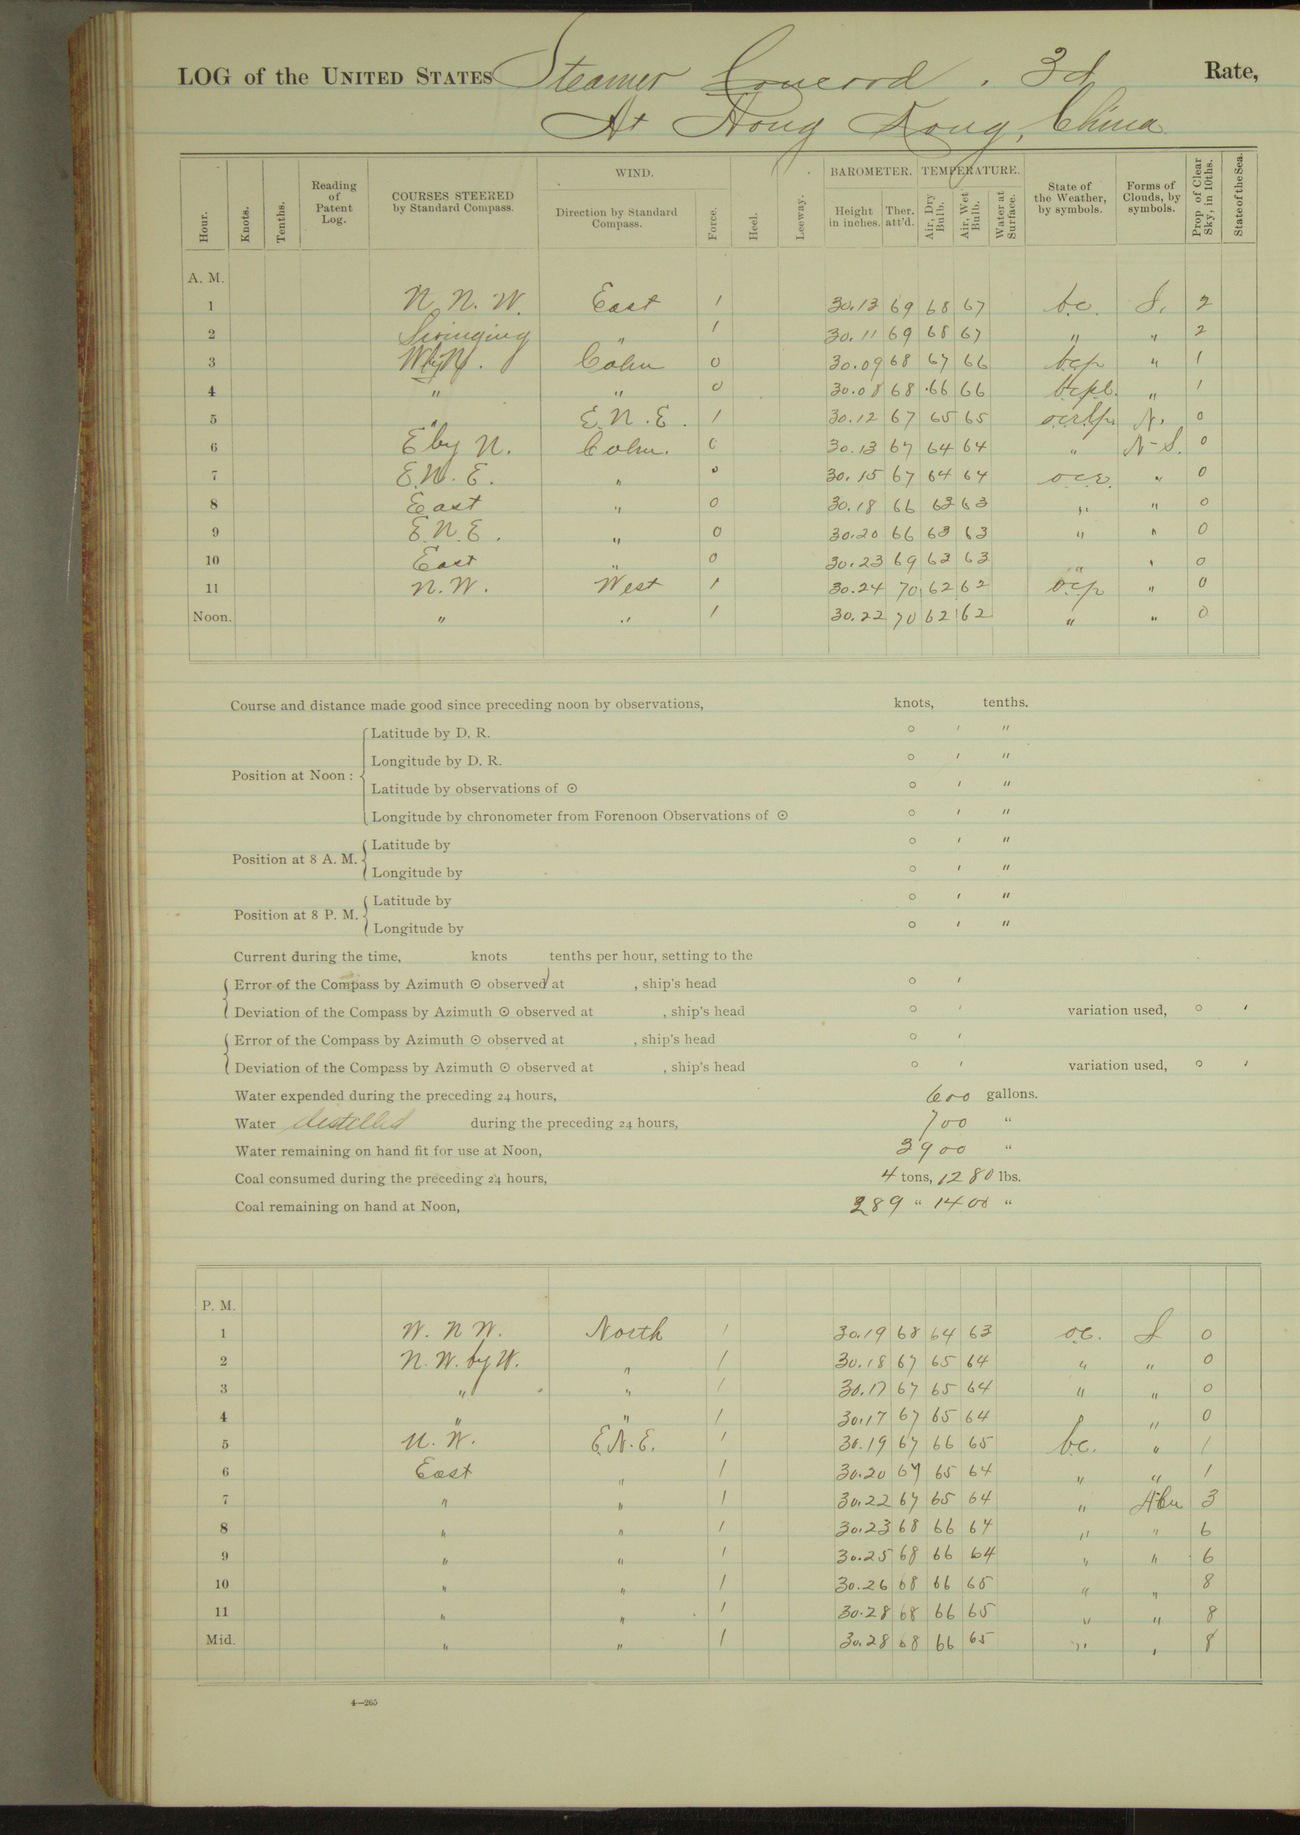 LOG of the UNITED STATES Steamer Concord. 3d Rate,
At Hong Kong, China
Hour. Knots. Tenths. Reading of Patent Log. COURSES STEERED by Standard Compass. WIND. Direction by Standard Compass. Force. Heel. Leeway. BAROMETER. Height in inches. Ther. att'd. TEMPERATURE. Air, Dry Bulb. Air, Wet Bulb. Water at Surface. State of the Weather, by symbols. Forms of Clouds, by symbols. Prop of Clear Sky, in 10ths. State of the Sea.
A. M.
1 N. N. W. East 1 30.13 69 68 67 b.c. S. 2
2 Swinging " 1 30.11 69 68 67 " " 2
3 W by N. Calm 0 30.09 68 67 66 bcp " 1
4 " " 0 30.08 68 66 66 " 1
5 " E. N. E. 1 30.12 67 65 65 N. 0
6 E by N. Calm. 0 30.13 67 64 64 " N-S. 0
7 E. N. E. " 0 30.15 67 64 64 " 0
8 East " 0 30.18 66 63 63 " " 0
9 E. N. E. " 0 30.20 66 63 63 " " 0
10 East " 0 30.23 69 63 63 " " 0
11 N. W. West 1 30.24 70 62 62 ocp " 0
Noon. " " 1 30.22 70 62 62 " " 0
Course and distance made good since preceding noon by observations, knots, tenths.
Position at Noon :
Latitude by D. R. ° ′ ″
Longitude by D. R. ° ′ ″
Latitude by observations of ⊙ ° ′ ″
Longitude by chronometer from Forenoon Observations of ⊙ ° ′ ″
Position at 8 A. M.
Latitude by ° ′ ″
Longitude by ° ′ ″
Position at 8 P. M.
Latitude by ° ′ ″
Longitude by ° ′ ″
Current during the time, knots tenths per hour, setting to the
Error of the Compass by Azimuth ⊙ observed at , ship's head ° ′
Deviation of the Compass by Azimuth ⊙ observed at , ship's head ° ′ variation used, ° ′
Error of the Compass by Azimuth ⊙ observed at , ship's head ° ′
Deviation of the Compass by Azimuth ⊙ observed at , ship's head ° ′ variation used, ° ′
Water expended during the preceding 24 hours, 600 gallons.
Water distilled during the preceding 24 hours, 700 "
Water remaining on hand fit for use at Noon, 3900 "
Coal consumed during the preceding 24 hours, 4 tons, 1280 lbs.
Coal remaining on hand at Noon, 289 " 1400 "
P. M.
1 W. N W. North 1 30.19 68 64 63 oc. S 0
2 N. W. by W. " 1 30.18 67 65 64 " " 0
3 " " 1 30.17 67 65 64 " " 0
4 " " 1 30.17 67 65 64 " " 0
5 N. W. E. N. E. 1 30.19 67 66 65 b.c. " 1
6 East " 1 30.20 67 65 64 " " 1
7 " " 1 30.22 67 65 64 " 3
8 " " 1 30.23 68 66 64 " " 6
9 " " 1 30.25 68 66 64 " " 6
10 " " 1 30.26 68 66 65 " " 8
11 " " 1 30.28 68 66 65 " " 8
Mid. " " 1 30.28 68 66 65 " " 8
4—265